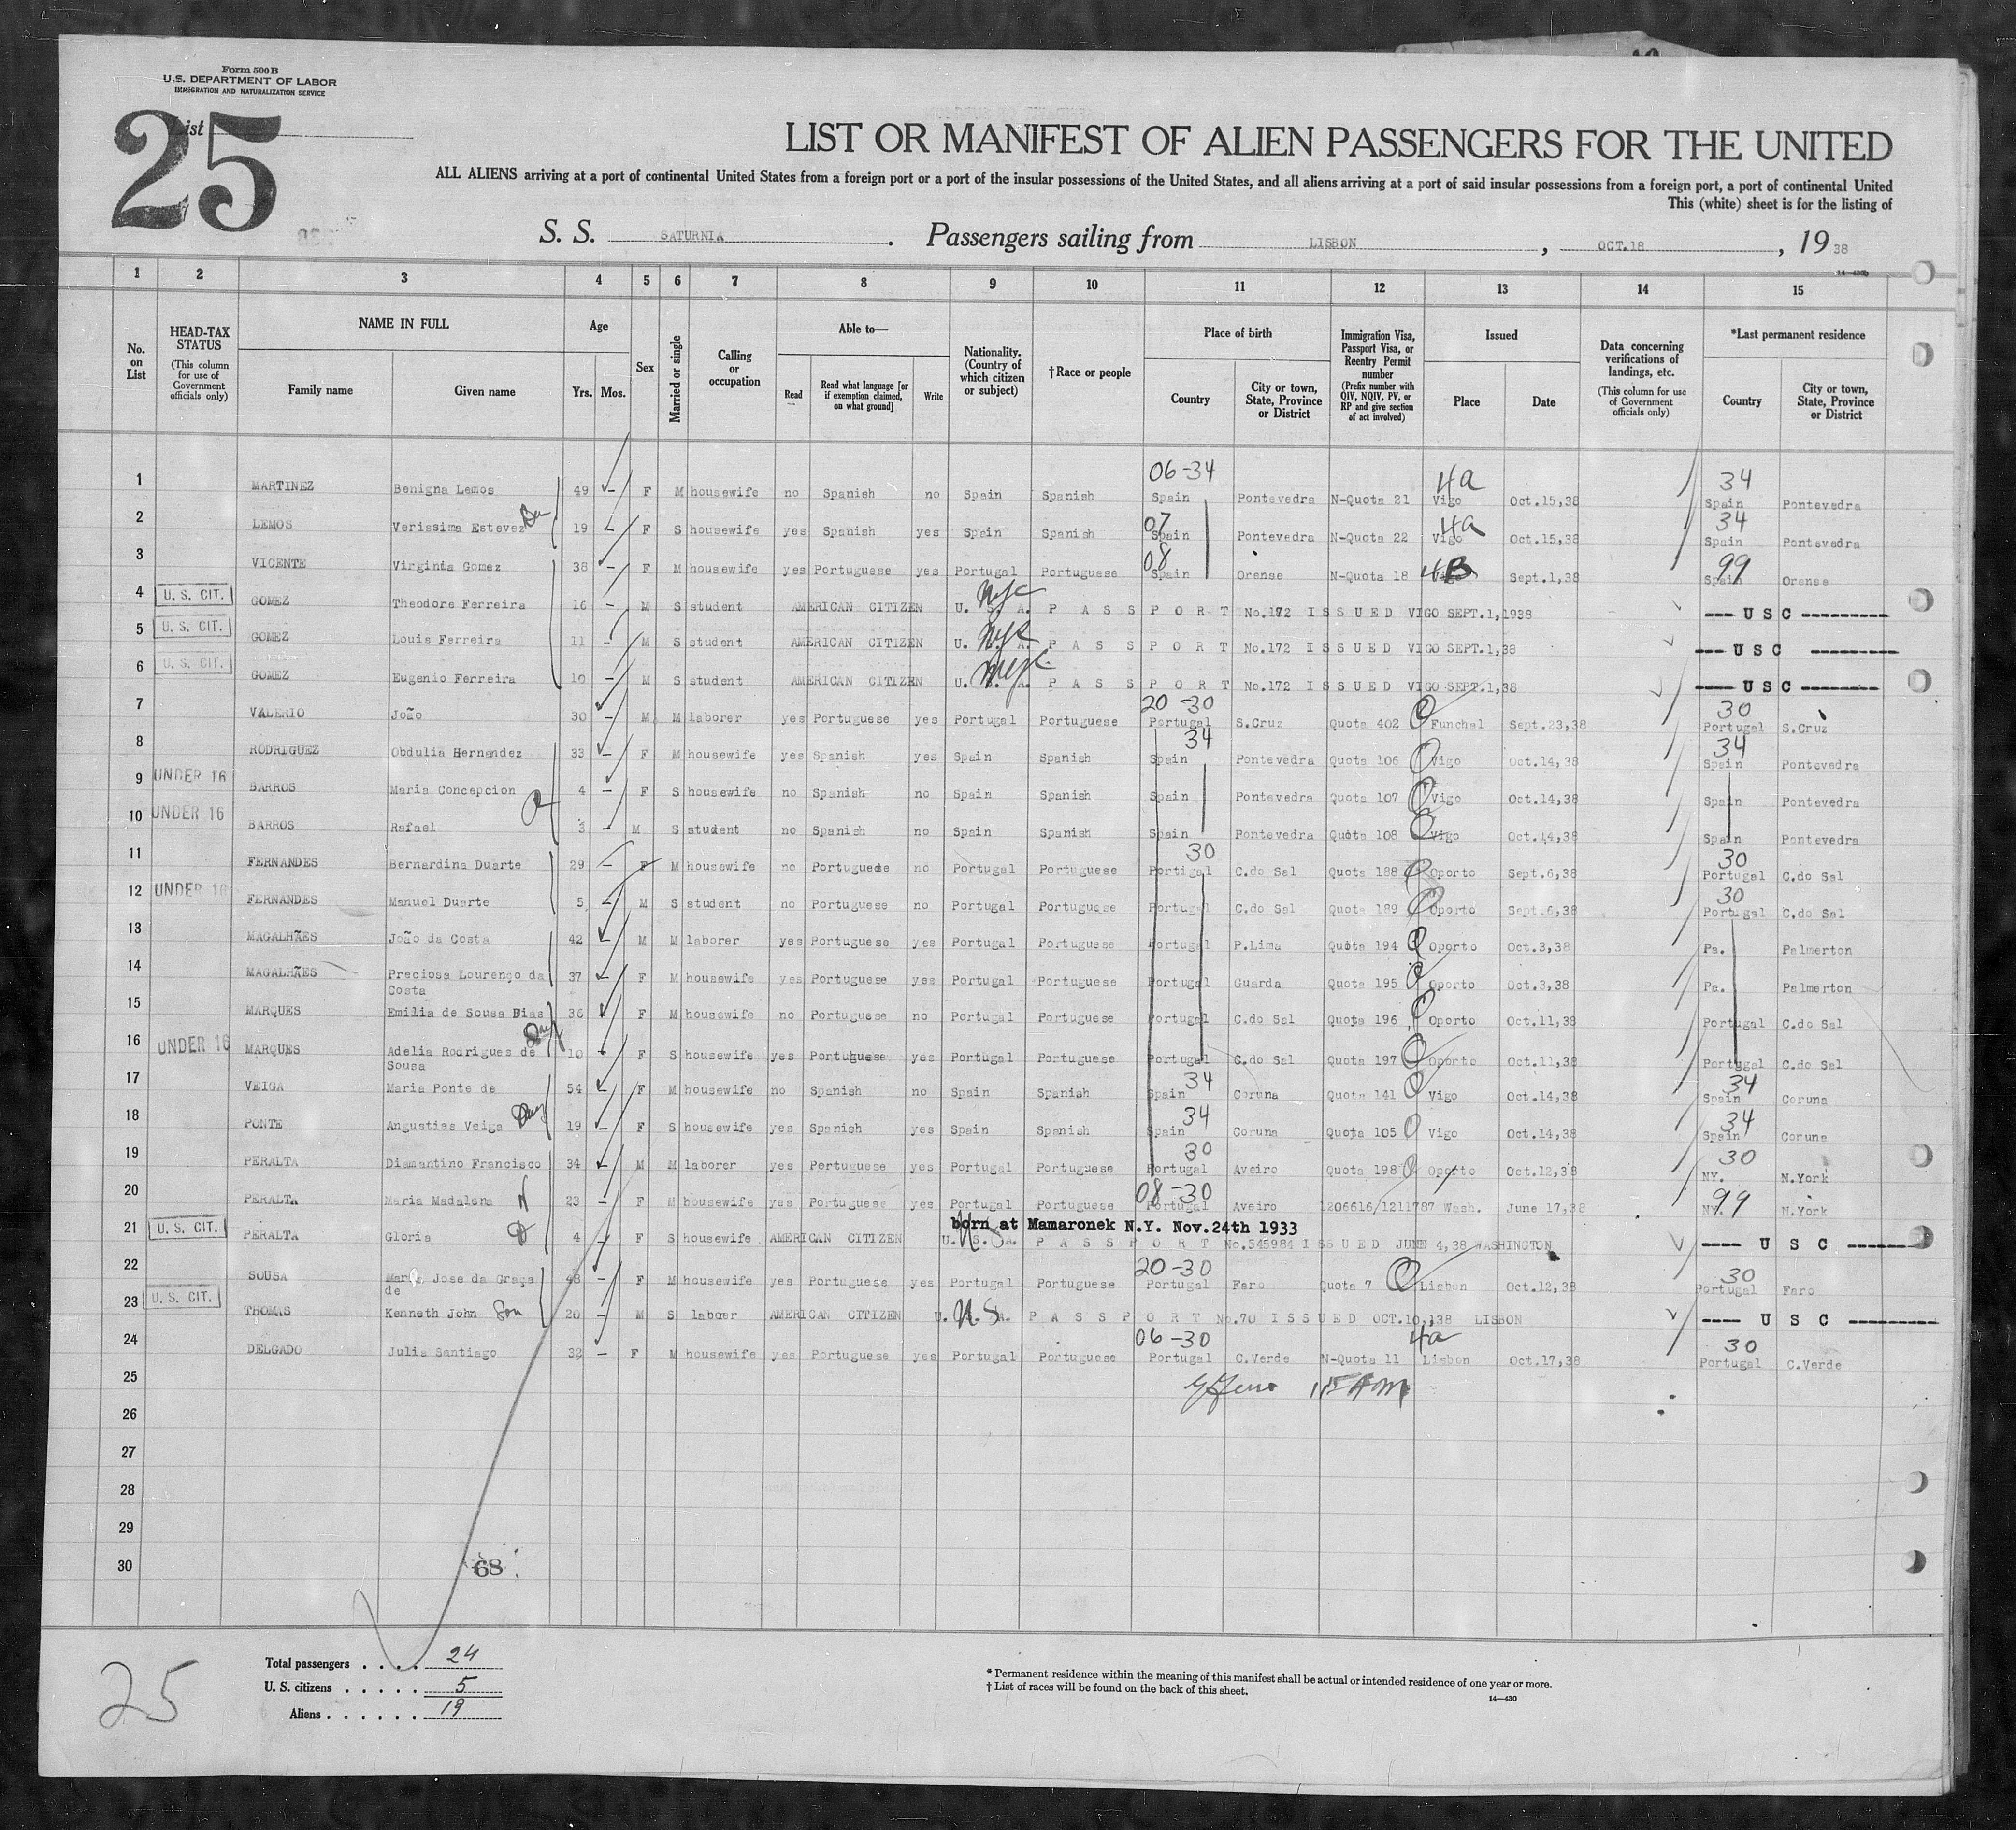 Form 500 B
U.S. DEPARTMENT OF LABOR
IMMIGRATION AND NATURALIZATION SERVICE
List
25
LIST OR MANIFEST OF ALIEN PASSENGERS FOR THE UNITED
ALL ALIENS arriving at a port of continental United States from a foreign port or a port of the insular possessions of the United States, and all aliens arriving at a port of said insular possessions from a foreign port, a port of continental United
This (white) sheet is for the listing of
S. S. SATURNIA. Passengers sailing from LISBON, OCT.18, 19 38
14—430b
1 2 3 4 5 6 7 8 9 10 11 12 13 14 15
No. on List
HEAD-TAX STATUS (This column for use of Government officials only)
NAME IN FULL Family name Given name
Age Yrs. Mos.
Sex
Married or single
Calling or occupation
Able to— Read Read what language [or if exemption claimed, on what ground] Write
Nationality. (Country of which citizen or subject)
†Race or people
Place of birth Country City or town, State, Province or District
Immigration Visa, Passport Visa, or Reentry Permit number (Prefix number with QIV, NQIV, PV, or RP and give section of act involved)
Issued Place Date
Data concerning verifications of landings, etc. (This column for use of Government officials only)
*Last permanent residence Country City or town, State, Province or District
06-34 4a 34
1 MARTINEZ Benigna Lemos 49 – F M housewife no Spanish no Spain Spanish Spain Pontevedra N-Quota 21 Vigo Oct.15,38 Spain Pontevedra
07 4a 34
2 LEMOS Verissima Estevez 19 – F S housewife yes Spanish yes Spain Spanish Spain Pontevedra N-Quota 22 Vigo Oct.15,38 Spain Pontevedra
08 4B 99
3 VICENTE Virginia Gomez 38 – F M housewife yes Portuguese yes Portugal Portuguese Spain Orense N-Quota 18 Sept.1,38 Spain Orense
4 U. S. CIT. GOMEZ Theodore Ferreira 16 – M S student AMERICAN CITIZEN U. S. A. nyc P A S S P O R T No.172 I S S U E D VIGO SEPT.1,1938 --- U S C ---
5 U. S. CIT. GOMEZ Louis Ferreira 11 – M S student AMERICAN CITIZEN U. S. A. nyc P A S S P O R T No.172 I S S U E D VIGO SEPT.1,38 --- U S C ---
6 U. S. CIT. GOMEZ Eugenio Ferreira 10 – M S student AMERICAN CITIZEN U. S. A. nyc P A S S P O R T No.172 I S S U E D VIGO SEPT.1,38 --- U S C ---
20-30 30
7 VALERIO João 30 – M M laborer yes Portuguese yes Portugal Portuguese Portugal S.Cruz Quota 402 Funchal Sept.23,38 Portugal S.Cruz
34 34
8 RODRIGUEZ Obdulia Hernandez 33 – F M housewife yes Spanish yes Spain Spanish Spain Pontevedra Quota 106 Vigo Oct.14,38 Spain Pontevedra
9 UNDER 16 BARROS Maria Concepcion 4 – F S housewife no Spanish no Spain Spanish Spain Pontevedra Quota 107 Vigo Oct.14,38 Spain Pontevedra
10 UNDER 16 BARROS Rafael 3 – M S student no Spanish no Spain Spanish Spain Pontevedra Quota 108 Vigo Oct.14,38 Spain Pontevedra
30 30
11 FERNANDES Bernardina Duarte 29 – F M housewife no Portuguese no Portugal Portuguese Portigal C.do Sal Quota 188 Oporto Sept.6,38 Portugal C.do Sal
30
12 UNDER 16 FERNANDES Manuel Duarte 5 – M S student no Portuguese no Portugal Portuguese Portugal C.do Sal Quota 189 Oporto Sept.6,38 Portugal C.do Sal
13 MAGALHÃES João da Costa 42 – M M laborer yes Portuguese yes Portugal Portuguese Portugal P.Lima Quota 194 Oporto Oct.3,38 Pa. Palmerton
14 MAGALHÃES Preciosa Lourenço da Costa 37 – F M housewife yes Portuguese yes Portugal Portuguese Portugal Guarda Quota 195 Oporto Oct.3,38 Pa. Palmerton
15 MARQUES Emilia de Sousa Dias 36 F M housewife no Portuguese no Portugal Portuguese Portugal C.do Sal Quota 196 Oporto Oct.11,38 Portugal C.do Sal
16 UNDER 16 MARQUES Adelia Rodrigues de Sousa 10 – F S housewife yes Portuguese yes Portugal Portuguese Portugal C.do Sal Quota 197 Oporto Oct.11,38 Portugal C.do Sal
34 34
17 VEIGA Maria Ponte de 54 – F M housewife no Spanish no Spain Spanish Spain Coruna Quota 141 Vigo Oct.14,38 Spain Coruna
34 34
18 PONTE Angustias Veiga 19 – F S housewife yes Spanish yes Spain Spanish Spain Coruna Quota 105 Vigo Oct.14,38 Spain Coruna
30 30
19 PERALTA Diamantino Francisco 34 – M M laborer yes Portuguese yes Portugal Portuguese Portugal Aveiro Quota 198 Oporto Oct.12,38 NY. N.York
08-30 99
20 PERALTA Maria Madalena 23 – F M housewife yes Portuguese yes Portugal Portuguese Portugal Aveiro 1206616/1211787 Wash. June 17,38 NY. N.York
born at Mamaronek N.Y. Nov.24th 1933
21 U. S. CIT. PERALTA Gloria 4 – F S housewife AMERICAN CITIZEN U.S.A. P A S S P O R T No.545984 I S S U E D JUNE 4,38 WASHINGTON ---- U S C ----
20-30 30
22 SOUSA Maria Jose da Graça de 48 – F M housewife yes Portuguese yes Portugal Portuguese Portugal Faro Quota 7 Lisbon Oct.12,38 Portugal Faro
23 U. S. CIT. THOMAS Kenneth John Son 20 – M S laborer AMERICAN CITIZEN U.S.A. P A S S P O R T No.70 I S S U E D OCT.10,138 LISBON ---- U S C ----
06-30 4a 30
24 DELGADO Julia Santiago 32 – F M housewife yes Portuguese yes Portugal Portuguese Portugal C.Verde N-Quota 11 Lisbon Oct.17,38 Portugal C.Verde
25
26
27
28
29
30
68
25
Total passengers . . . . 24
U. S. citizens . . . . . 5
Aliens . . . . . . 19
* Permanent residence within the meaning of this manifest shall be actual or intended residence of one year or more.
† List of races will be found on the back of this sheet.
14—430